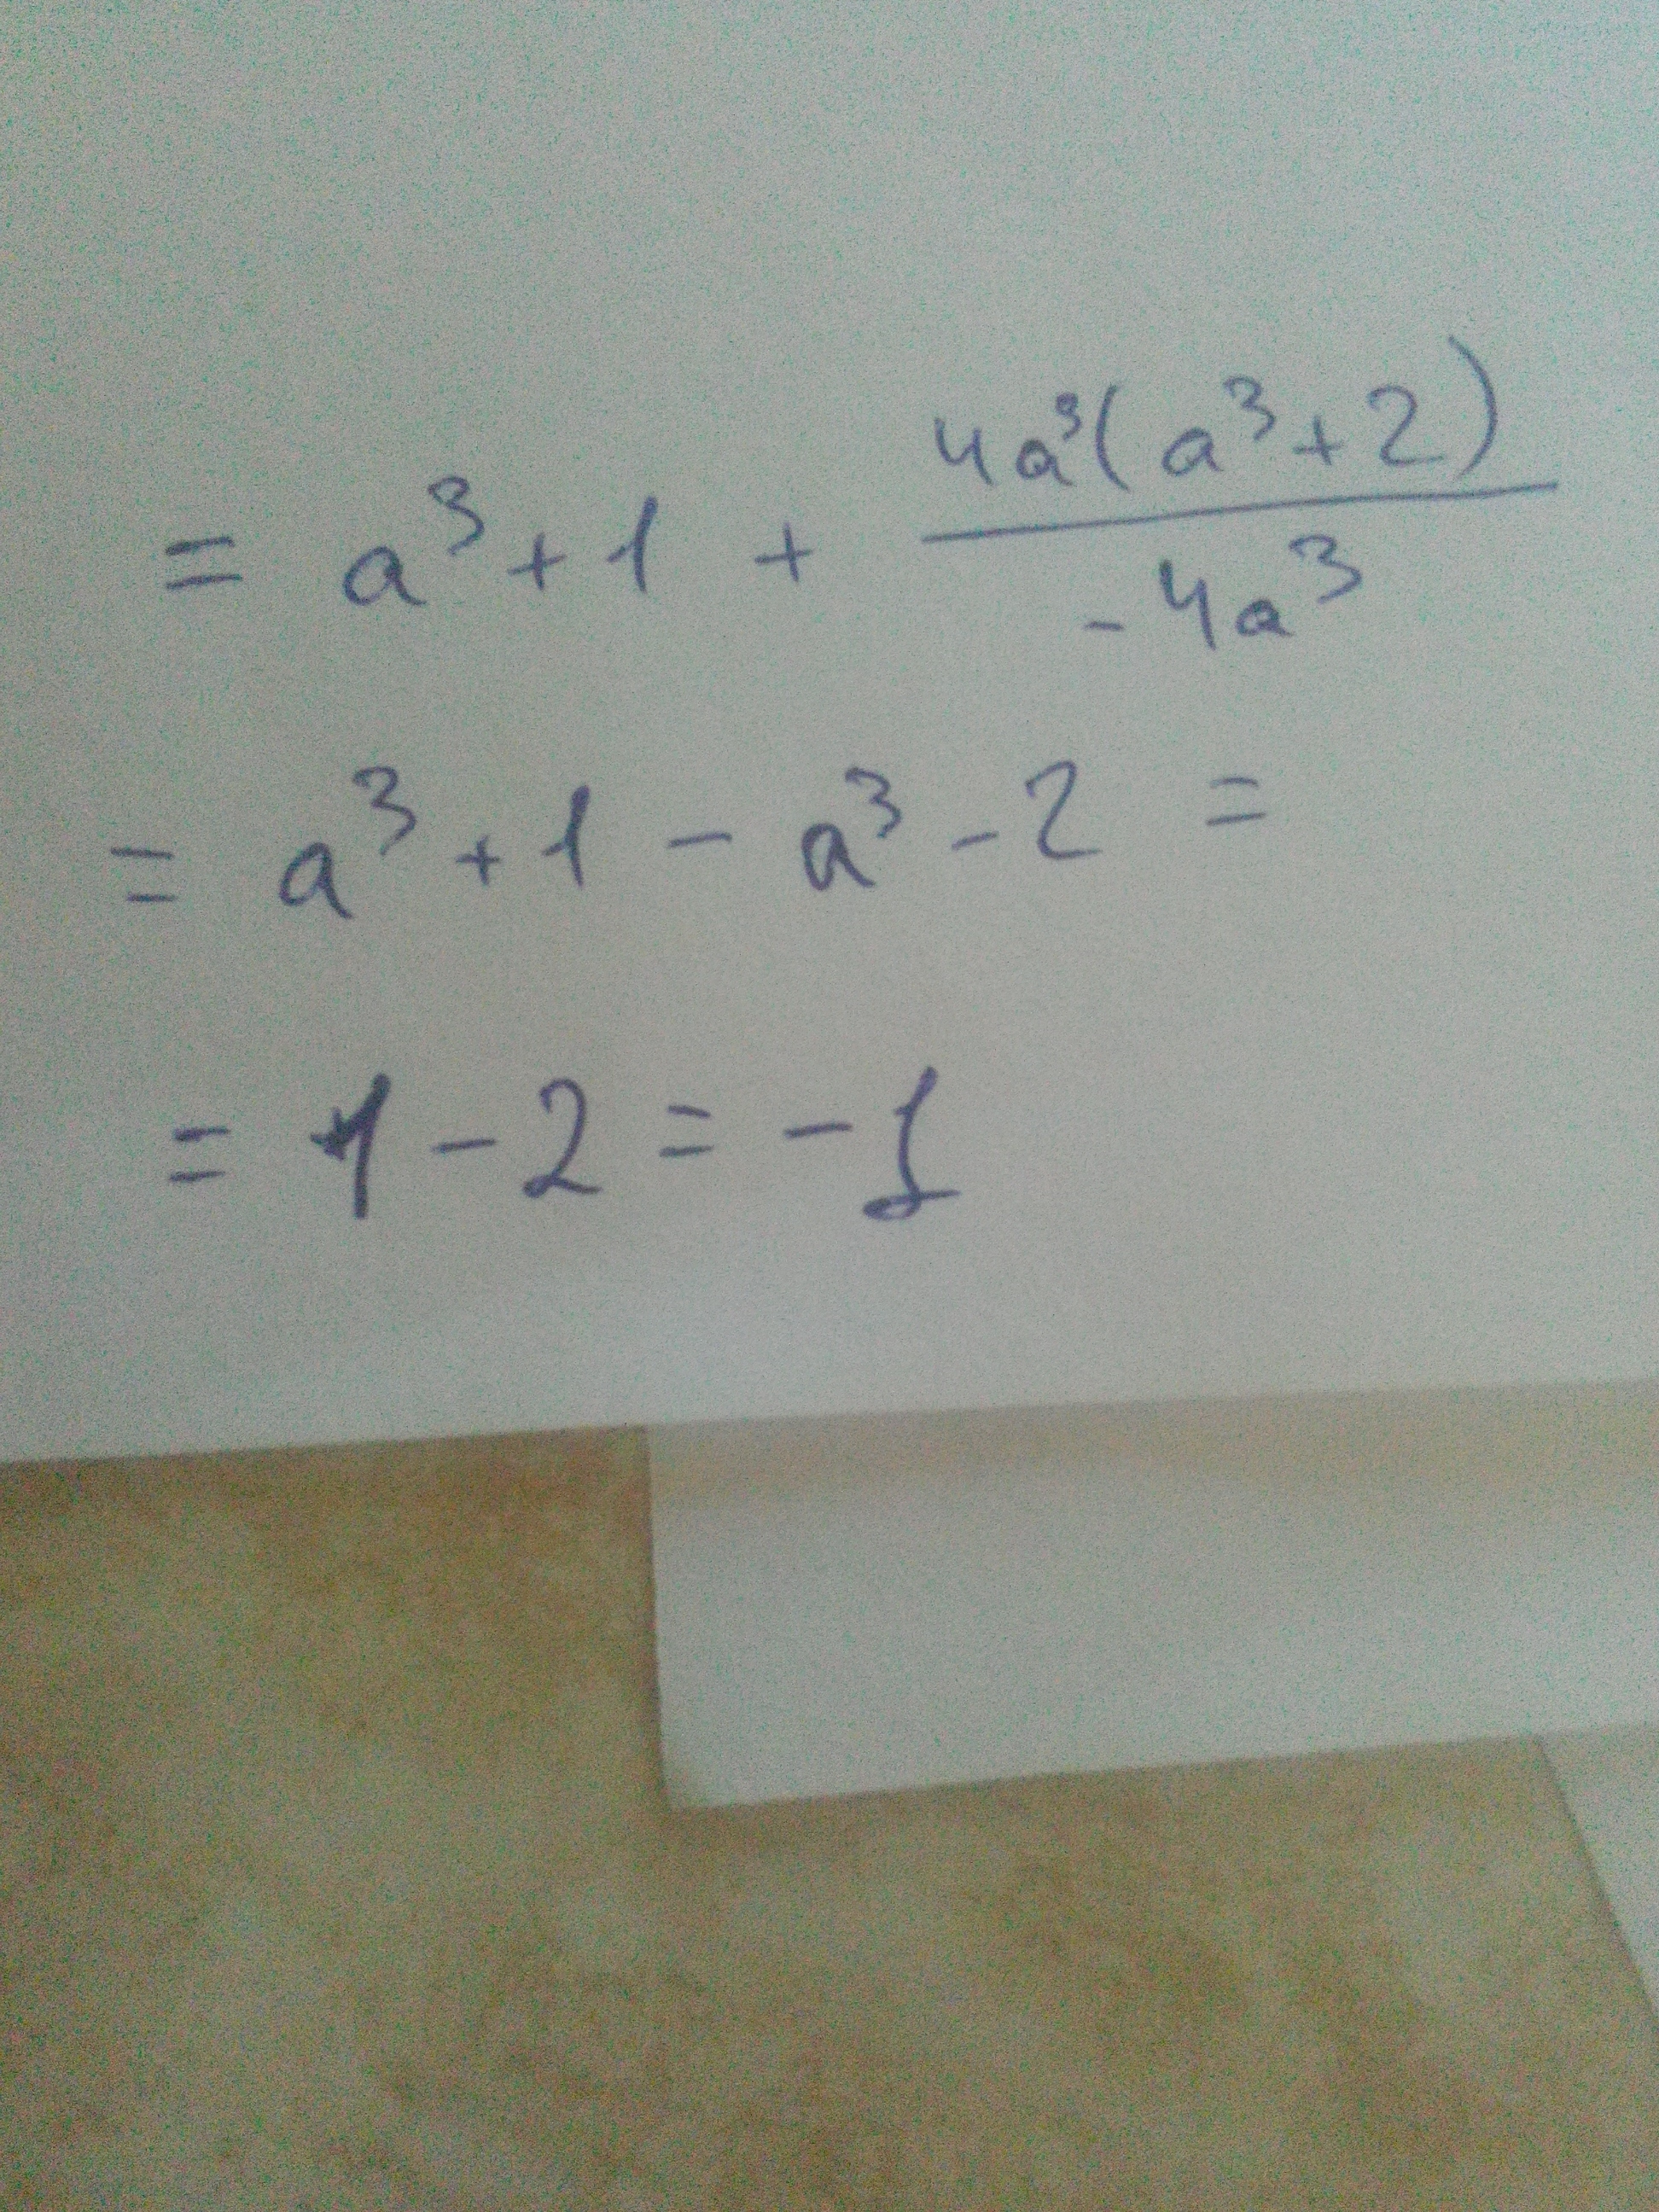 = a³ + 1 + 4a³(a³ + 2) / -4a³
= a³ + 1 - a³ - 2 =
= 1 - 2 = -1